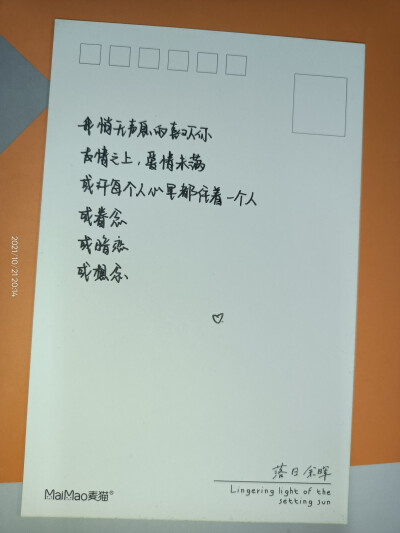 我悄无声息的喜欢你
友情之上，爱情未满
或许每个人心里都住着一个人
或眷念
或暗恋
或想念
♡
落日余晖
Lingering light of the
setting sun
MaiMao麦猫®
2021/10/21 20:14